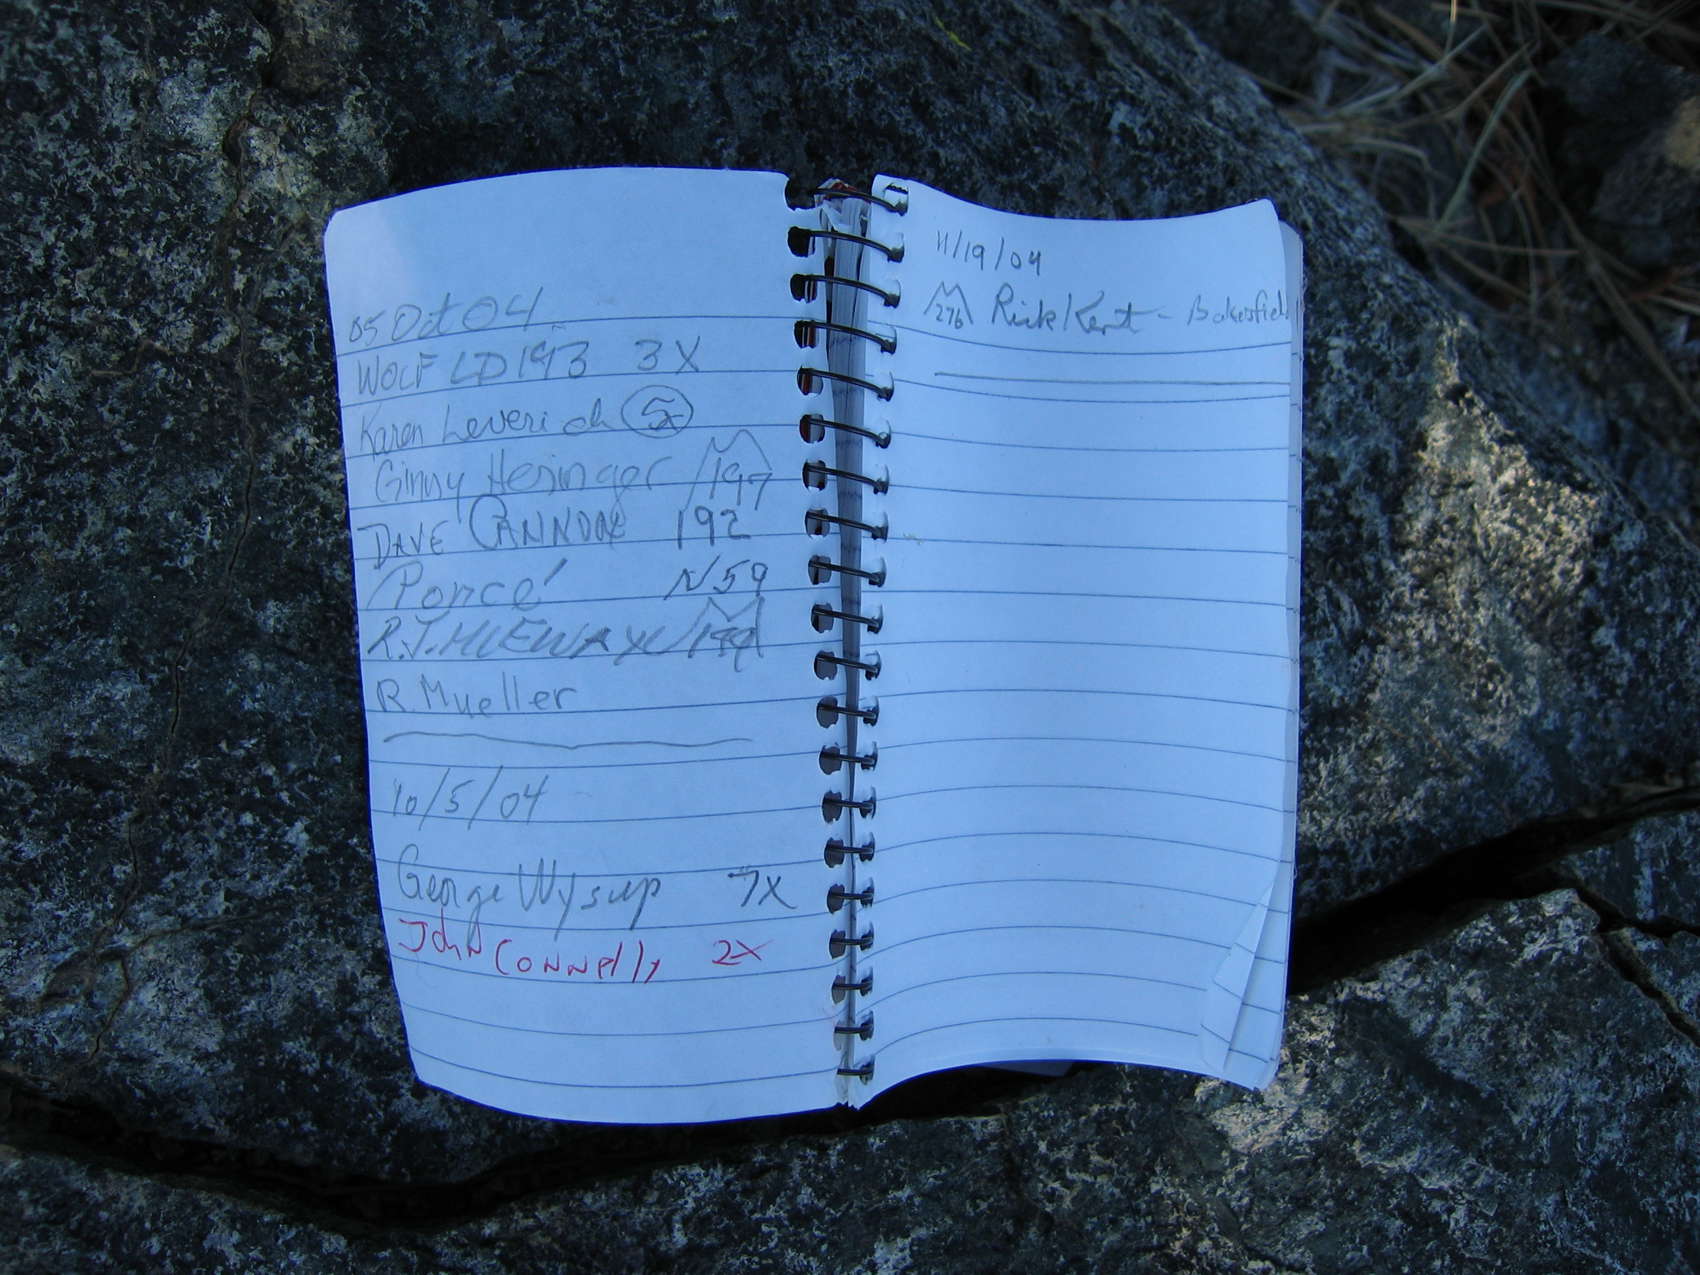 05 Oct 04
WOLF LD193 3X
Karen Leverich 5x
Ginny Hesinger 197
DAVE CANNON 192
Poncé N59
R.J.
R. Mueller
10/5/04
George Wysup 7X
John Connelly 2X
11/19/04
276 Rick Kent - Bakersfield